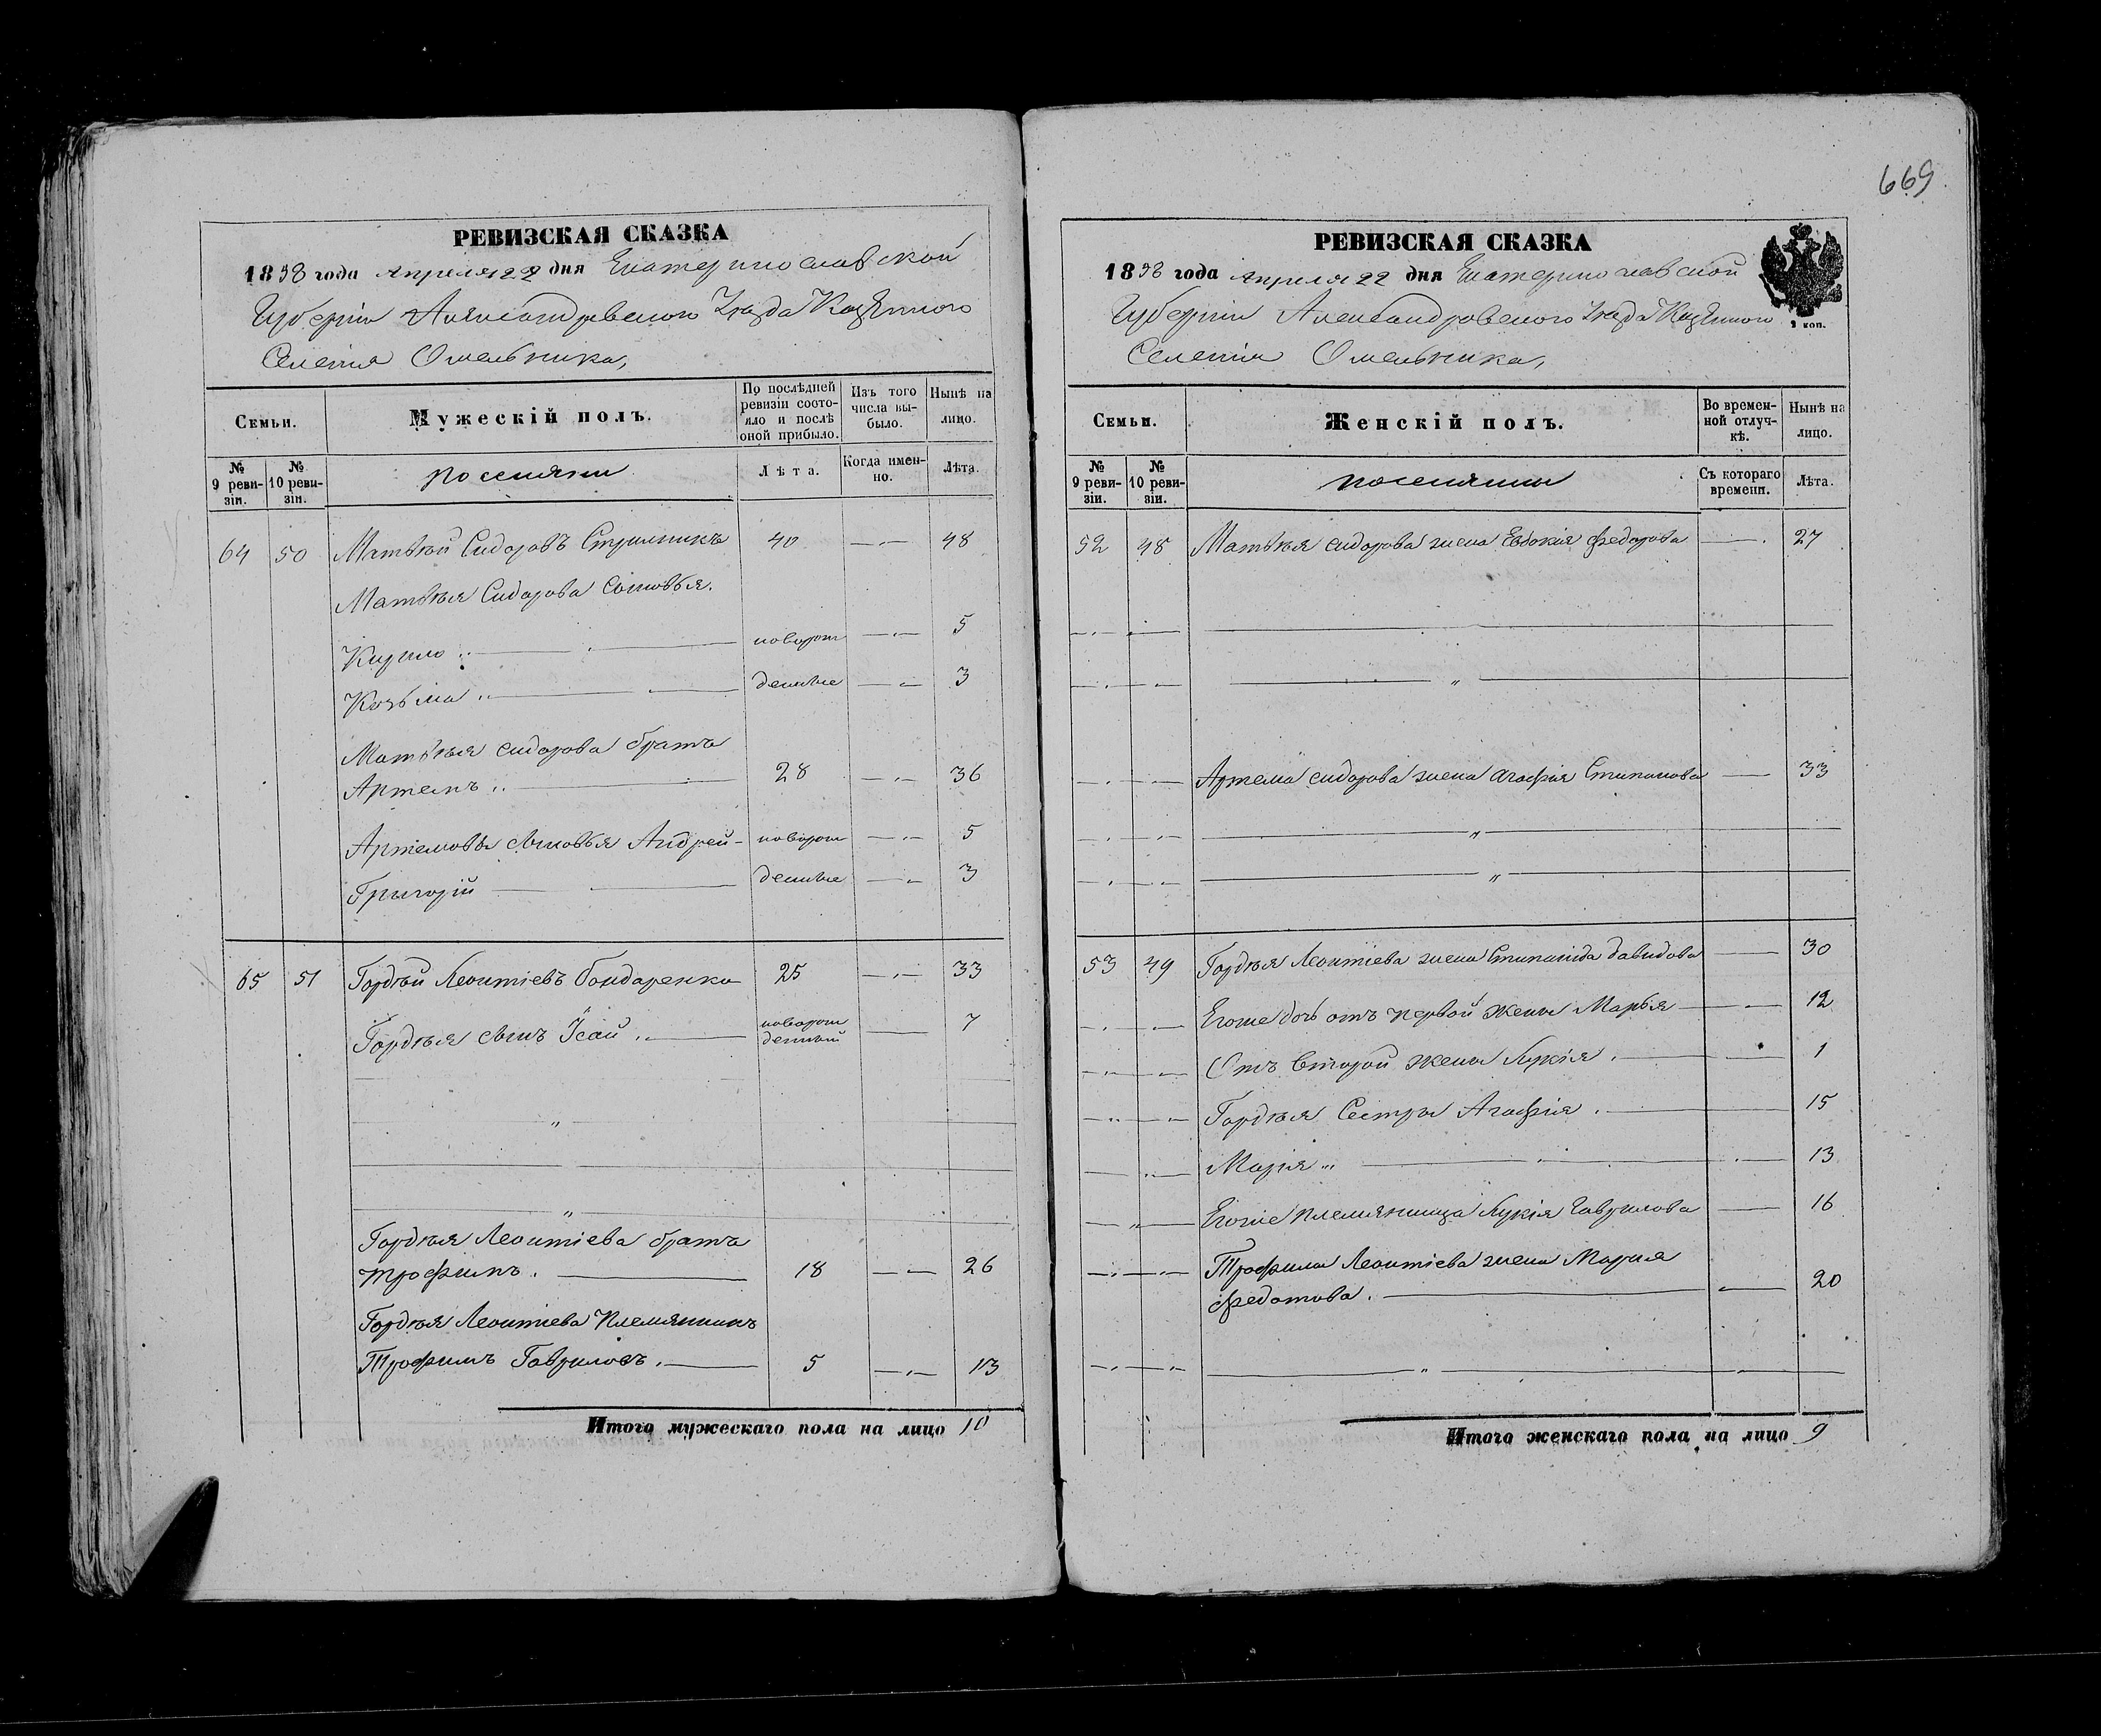 669
РЕВИЗСКАЯ СКАЗКА
1858 года Апреля 22 дня Екатеринославской
Губерніи Александровского Уезда Казенного
Селенія Омельника,
Семьи.
Мужескій полъ.
По послѣдней ревизіи состояло и послѣ оной прибыло.
Изъ того числа выбыло.
Нынѣ на лицо.
№ 9 ревизіи.
№ 10 ревизіи.
поселяни
Лѣта.
Когда именно.
Лѣта.
64 50 Матвѣй Сидоровъ Стрильникъ 40 — 48
Матвѣя Сидорова Сыновья.
Кирило — новорож 5
Козьма — денные 3
Матвѣя Сидорова братъ
Артемъ — 28 — 36
Артемовы сыновья Андрей - новорож — 5
Григорій — денные — 3
65 51 Гордѣй Леонтіевъ Бондаренко 25 — 33
Гордѣя сынъ Ісай — новорож денный — 7
Гордѣя Леонтіева братъ
Трофимъ. — 18 — 26
Гордѣя Леонтіева Племянникъ
Трофимъ Гавриловъ. — 5 — 13
Итого мужескаго пола на лицо 10
РЕВИЗСКАЯ СКАЗКА
1858 года Апреля 22 дня Екатеринославской
Губерніи Александровского Уезда Казенного
Селенія Омельника,
2 коп.
Семьи.
Женскій полъ.
Во временной отлучкѣ.
Нынѣ на лицо.
№ 9 ревизіи.
№ 10 ревизіи.
поселянии
Съ котораго времени.
Лѣта.
52 48 Матвѣя Сидорова жена Евдокія Федорова — 27
Артема Сидорова жена Агафія Стипанова — 33
53 49 Гордѣя Леонтіева жена Стипанида Давидова — 30
Егоже дочь отъ первой жены Марья — 12
Отъ второй жены Лукія. — 1
Гордѣя Сестры Агафія. — 15
Марія — 13
Егоже племянница Лукія Гаврилова — 16
Трофима Леонтіева жена Мария
Федотова. — 20
Итого женскаго пола на лицо 9